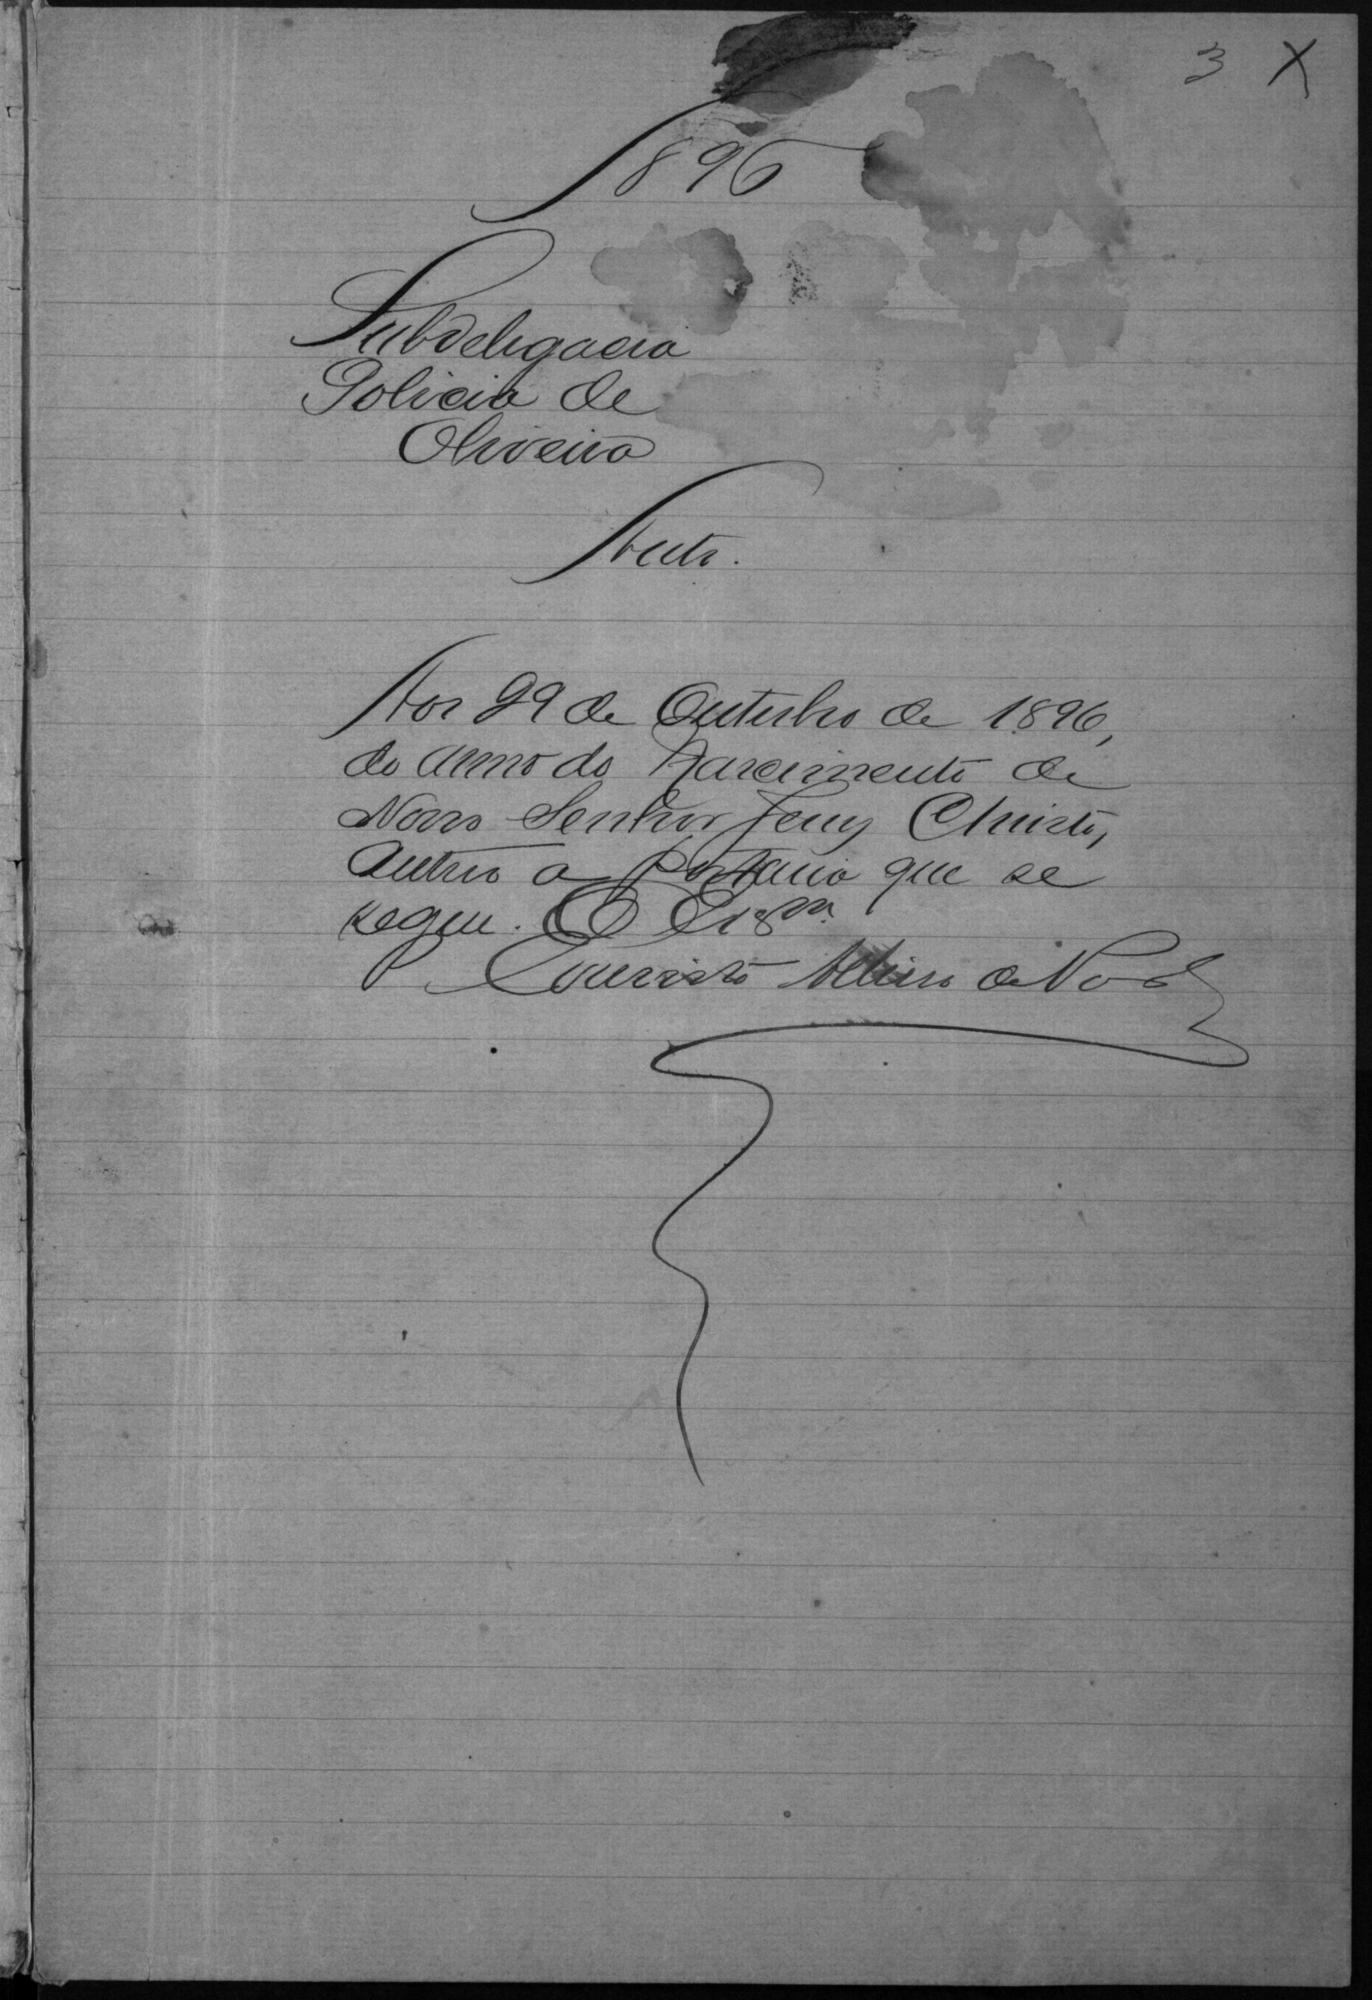 3 X
1896
Subdelegacia
Policia de
Oliveira
Auto.
Aos 29 de Outubro de 1896,
do anno do Nascimento de
Nosso Senhor Jesus Christo,
Autuo a portaria que se
segue. O Escr.m
Evaristo de